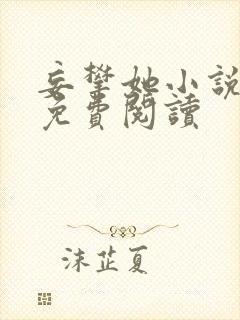 妄攀她小說
免費閱讀
沫芷夏